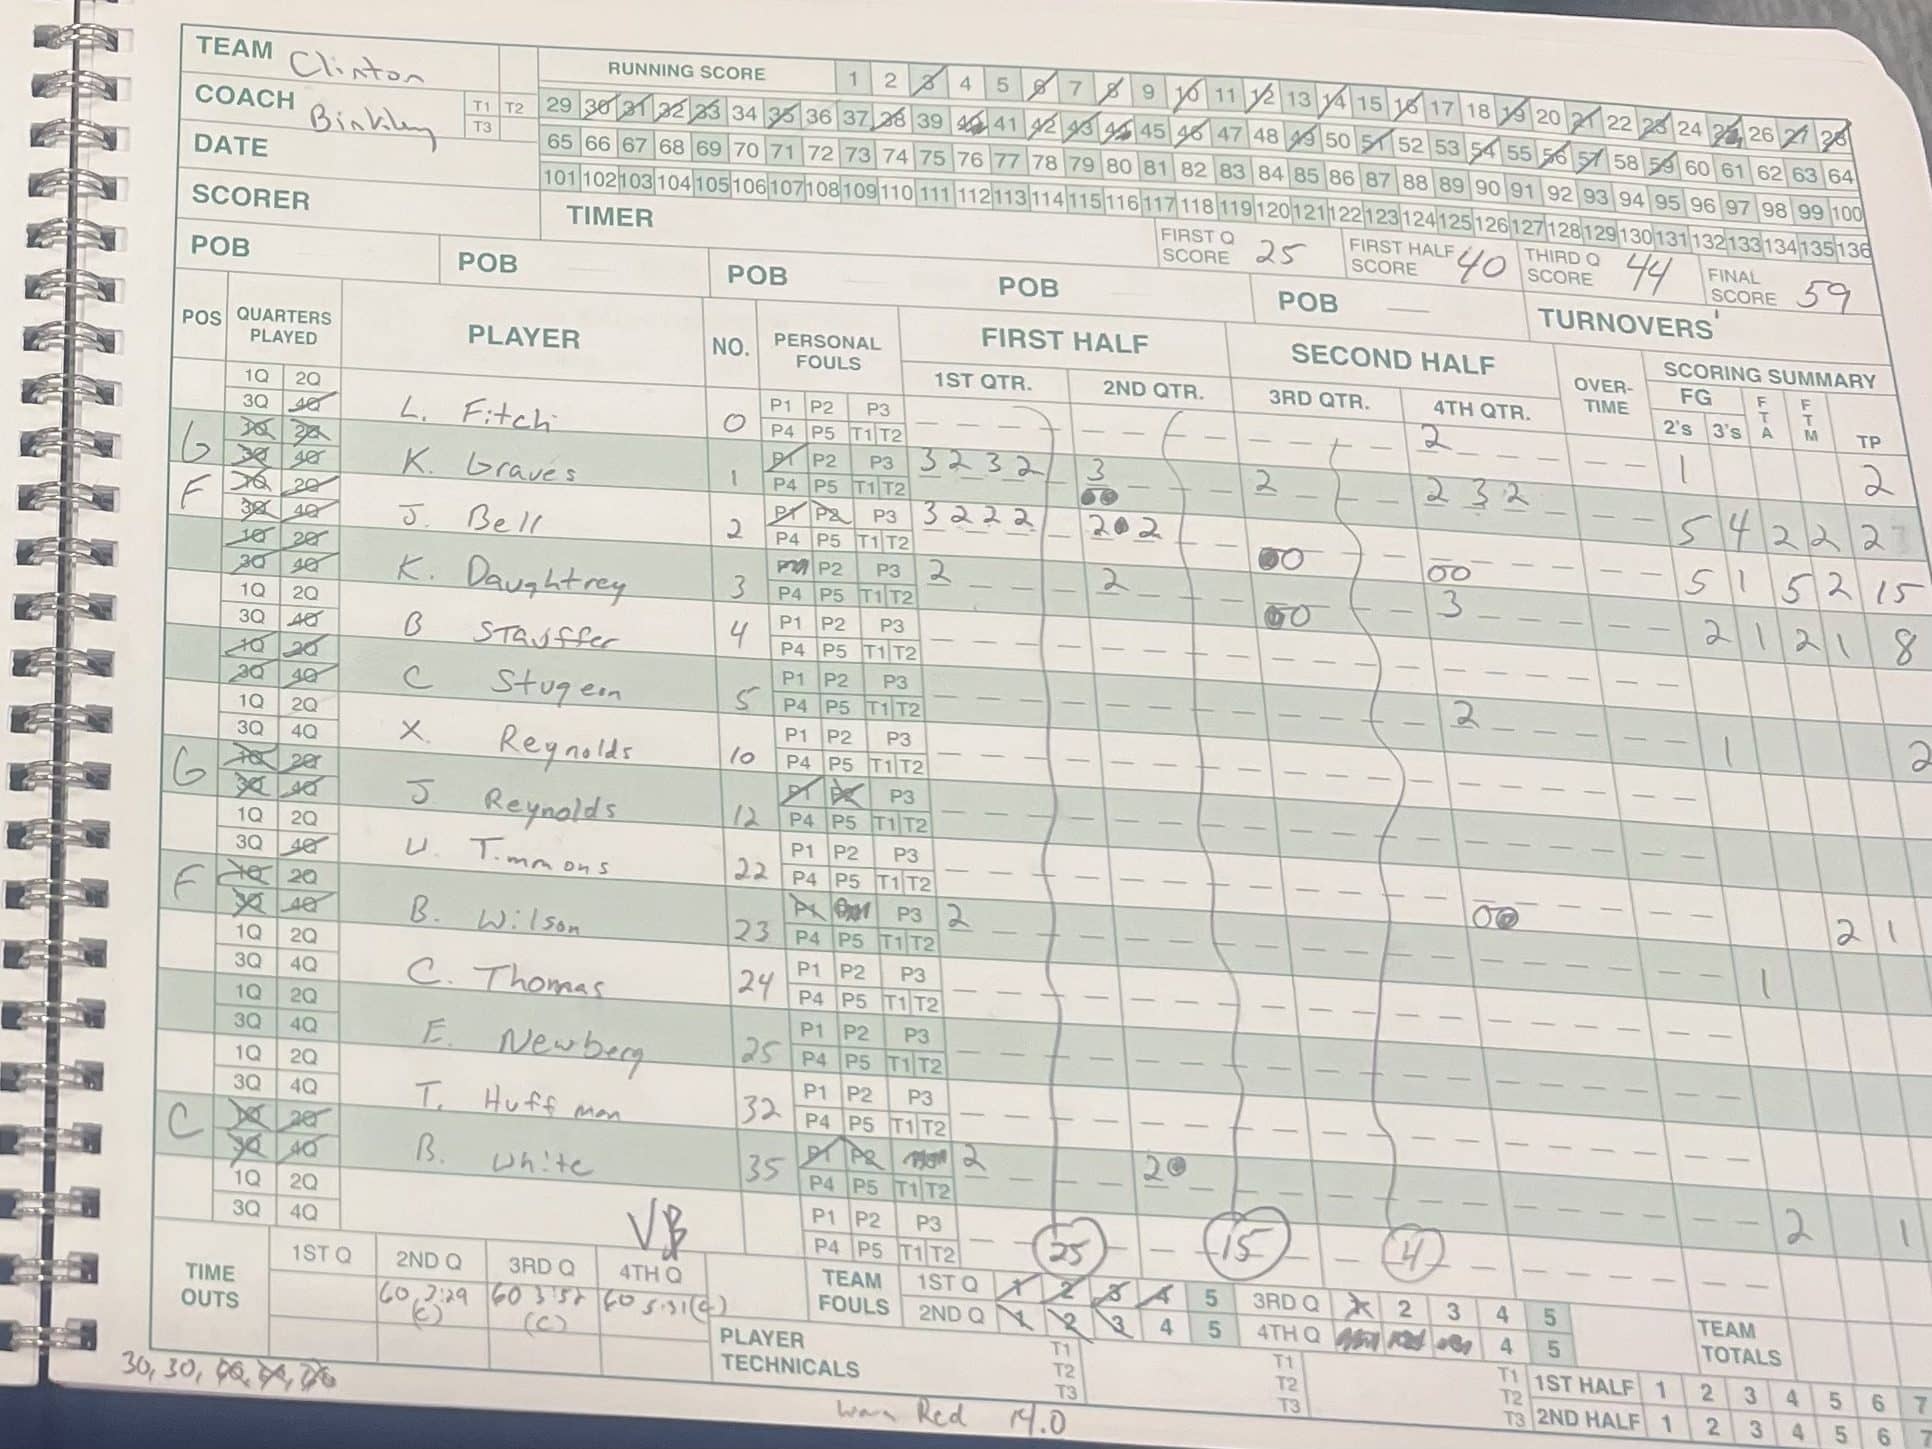 TEAM Clinton
RUNNING SCORE 1 2 3 4 5 6 7 8 9 10 11 12 13 14 15 16 17 18 19 20 21 22 23 24 25 26 27 28
COACH Binkley T1 T2 T3
29 30 31 32 33 34 35 36 37 38 39 40 41 42 43 44 45 46 47 48 49 50 51 52 53 54 55 56 57 58 59 60 61 62 63 64
DATE
65 66 67 68 69 70 71 72 73 74 75 76 77 78 79 80 81 82 83 84 85 86 87 88 89 90 91 92 93 94 95 96 97 98 99 100
101 102 103 104 105 106 107 108 109 110 111 112 113 114 115 116 117 118 119 120 121 122 123 124 125 126 127 128 129 130 131 132 133 134 135 136
SCORER
TIMER
FIRST Q SCORE 25 FIRST HALF SCORE 40 THIRD Q SCORE 44 FINAL SCORE 59
POB POB POB POB POB TURNOVERS
POS QUARTERS PLAYED PLAYER NO. PERSONAL FOULS FIRST HALF SECOND HALF OVER-TIME SCORING SUMMARY
1ST QTR. 2ND QTR. 3RD QTR. 4TH QTR. FG 2's 3's FTA FTM TP
1Q 2Q 3Q 4Q L. Fitch 0 P1 P2 P3 P4 P5 T1 T2 2 1 2
G 1Q 2Q 3Q 4Q K. Graves 1 P1 P2 P3 P4 P5 T1 T2 3 2 3 2 3 00 2 2 3 2 5 4 2 2 2
F 1Q 2Q 3Q 4Q J. Bell 2 P1 P2 P3 P4 P5 T1 T2 3 2 2 2 2 0 2 00 00 5 1 5 2 15
1Q 2Q 3Q 4Q K. Daughtrey 3 P1 P2 P3 P4 P5 T1 T2 2 2 00 3 2 1 2 1 8
1Q 2Q 3Q 4Q B Stauffer 4 P1 P2 P3 P4 P5 T1 T2
1Q 2Q 3Q 4Q C Stugeon 5 P1 P2 P3 P4 P5 T1 T2 2 1 2
1Q 2Q 3Q 4Q X. Reynolds 10 P1 P2 P3 P4 P5 T1 T2
G 1Q 2Q 3Q 4Q J Reynolds 12 P1 P2 P3 P4 P5 T1 T2
1Q 2Q 3Q 4Q U. Timmons 22 P1 P2 P3 P4 P5 T1 T2 00 2 1
F 1Q 2Q 3Q 4Q B. Wilson 23 P1 P3 P4 P5 T1 T2 2 1
1Q 2Q 3Q 4Q C. Thomas 24 P1 P2 P3 P4 P5 T1 T2
1Q 2Q 3Q 4Q E. Newberg 25 P1 P2 P3 P4 P5 T1 T2
1Q 2Q 3Q 4Q T. Huffman 32 P1 P2 P3 P4 P5 T1 T2
C 1Q 2Q 3Q 4Q B. White 35 P1 P2 P4 P5 T1 T2 2 20 2 1
1Q 2Q 3Q 4Q P1 P2 P3 P4 P5 T1 T2 25 15 4
VB
TIME OUTS 1ST Q 2ND Q 3RD Q 4TH Q
60 2:29 (C) 60 3:52 (C) 60 5:31 (C)
TEAM FOULS 1ST Q 1 2 3 4 5 3RD Q 1 2 3 4 5
2ND Q 1 2 3 4 5 4TH Q 4 5
TEAM TOTALS
PLAYER TECHNICALS T1 T2 T3 T1 T2 T3 T1 T2 T3
1ST HALF 1 2 3 4 5 6 7
2ND HALF 1 2 3 4 5 6
30, 30,
Warn Red 14.0